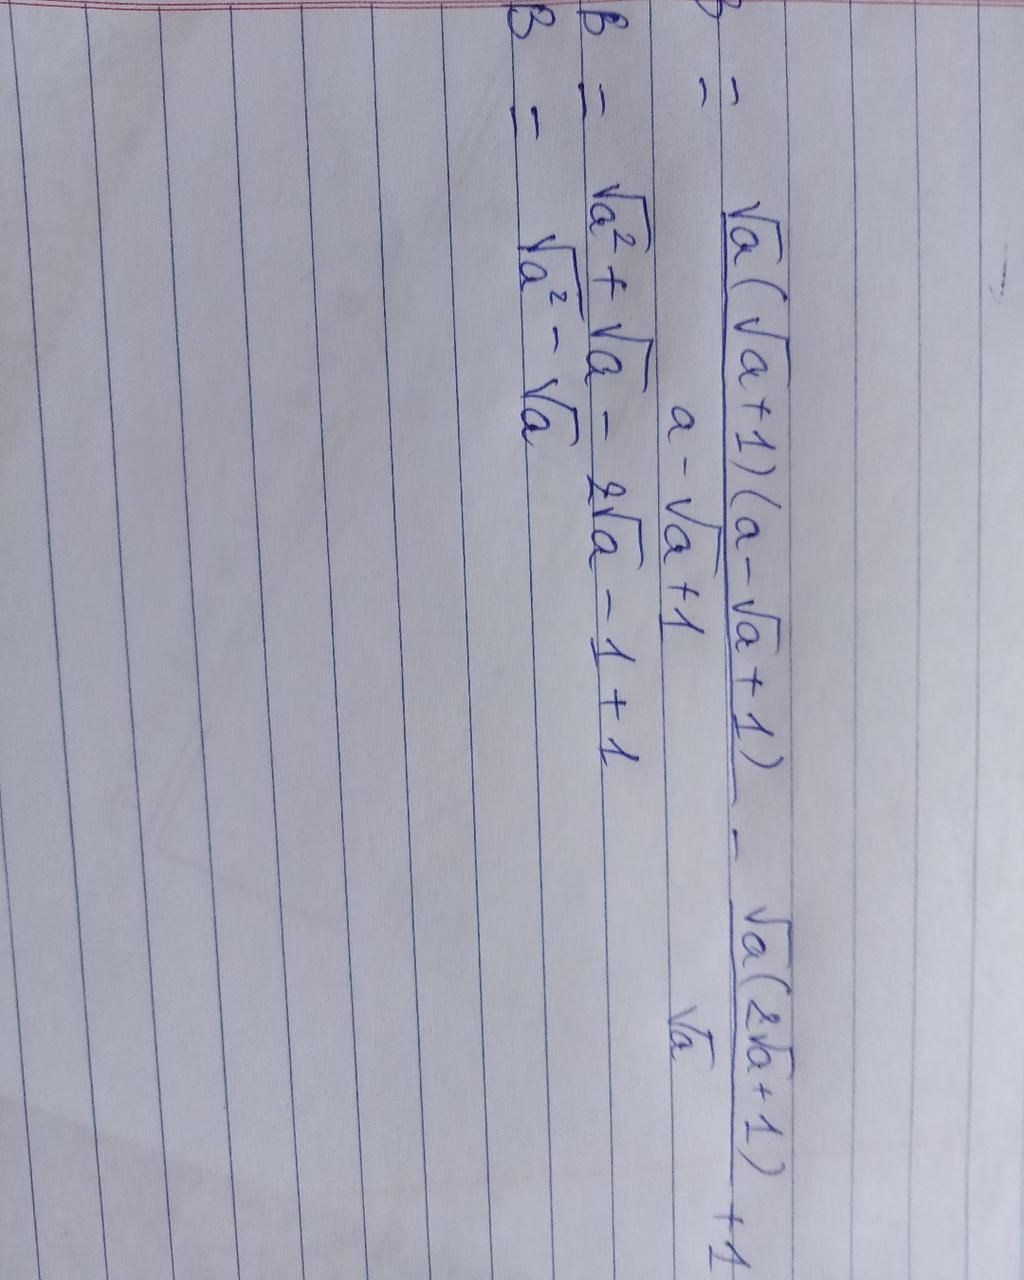 B = √a(√a+1)(a-√a+1) / a-√a+1 - √a(2√a+1) / √a +1
B = √a² + √a - 2√a - 1 + 1
B = √a² - √a